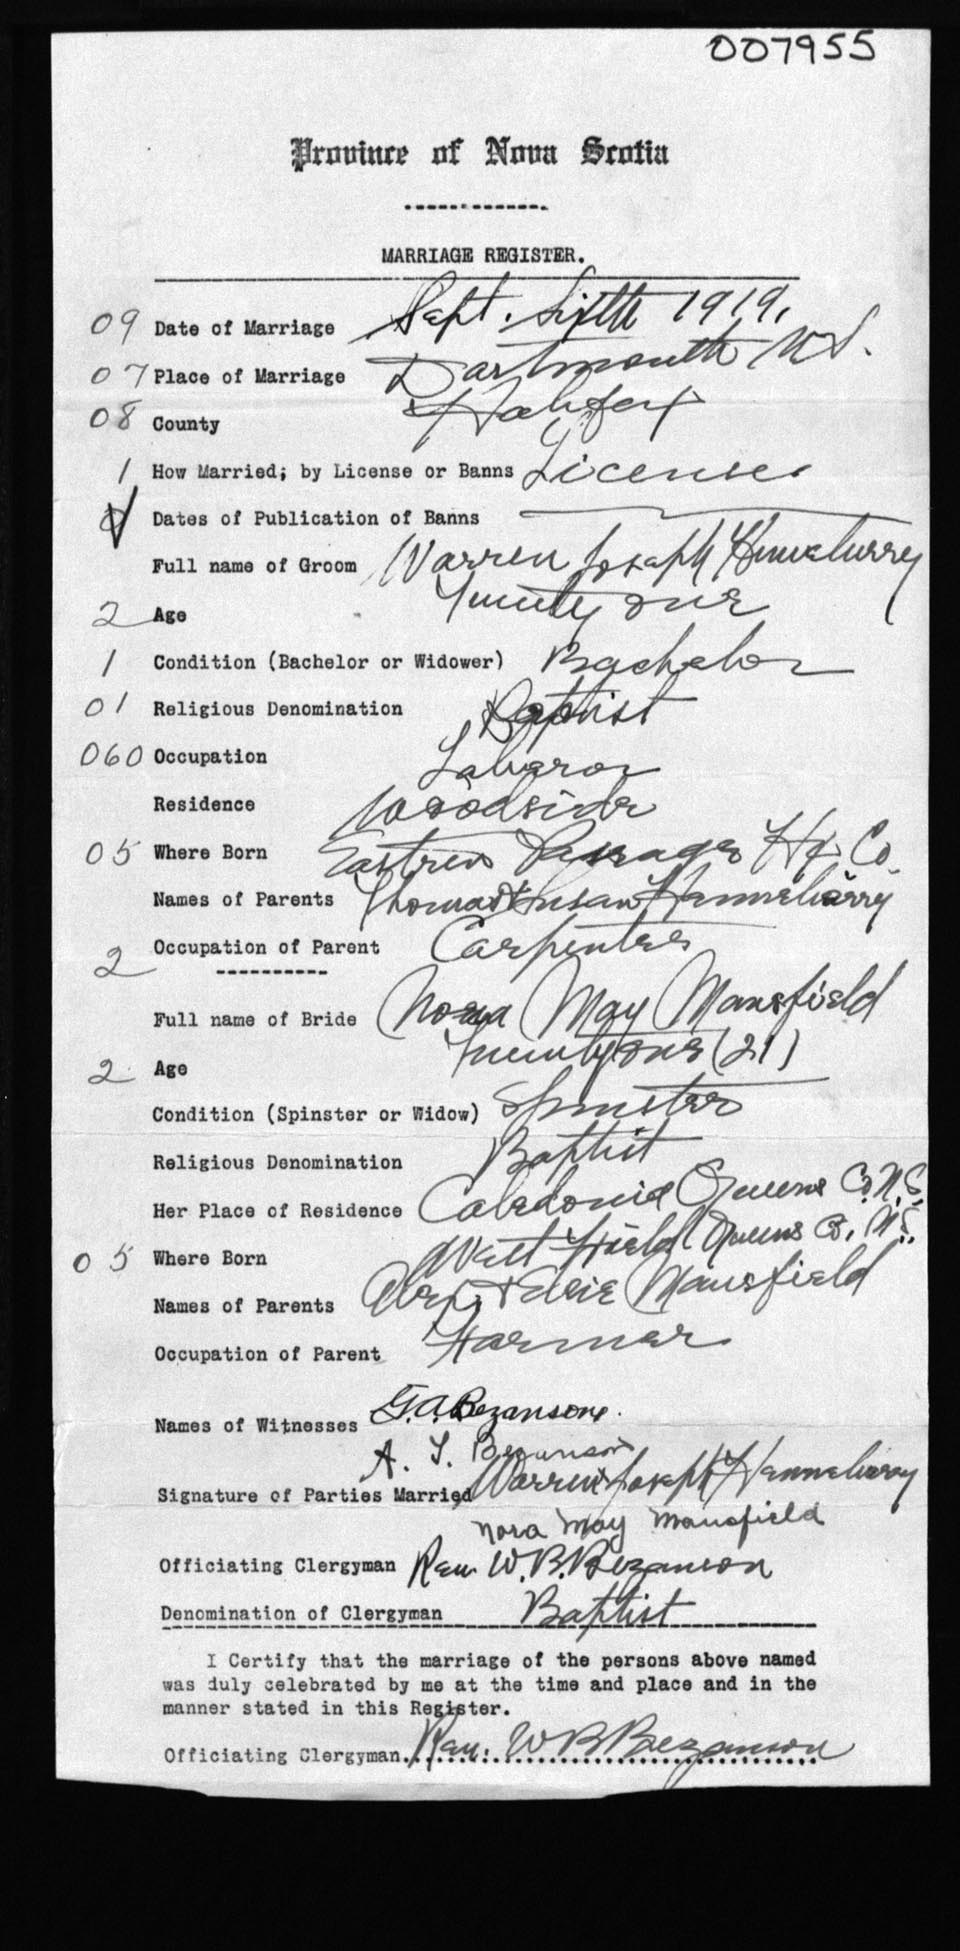 007955
Province of Nova Scotia
MARRIAGE REGISTER.
09 Date of Marriage Sept. Sixth 1919.
07 Place of Marriage Dartmouth N.S.
08 County Halifax
1 How Married; by License or Banns License
Dates of Publication of Banns
Full name of Groom Warren Joseph Henneberry
2 Age Twenty one
1 Condition (Bachelor or Widower) Bachelor
01 Religious Denomination Baptist
060 Occupation Laboror
Residence Woodside
05 Where Born Eastren Passage Hfx Co.
Names of Parents Thomas & Susan Henneberry
2 Occupation of Parent Carpenter
Full name of Bride Nora May Mansfield
2 Age Twenty one (21)
Condition (Spinster or Widow) Spinster
Religious Denomination Baptist
Her Place of Residence Caledonia Queens Co. N.S.
05 Where Born West Field Queens Co. N.S.
Names of Parents & Elsie Mansfield
Occupation of Parent Farmer
Names of Witnesses G. A. Bezanson.
A. T. Bezanson
Signature of Parties Married Warren Joseph Henneberry
Nora May Mansfield
Officiating Clergyman Rev. W. B. Bezanson
Denomination of Clergyman Baptist
I Certify that the marriage of the persons above named
was duly celebrated by me at the time and place and in the
manner stated in this Register.
Officiating Clergyman Rev. W B Bezanson